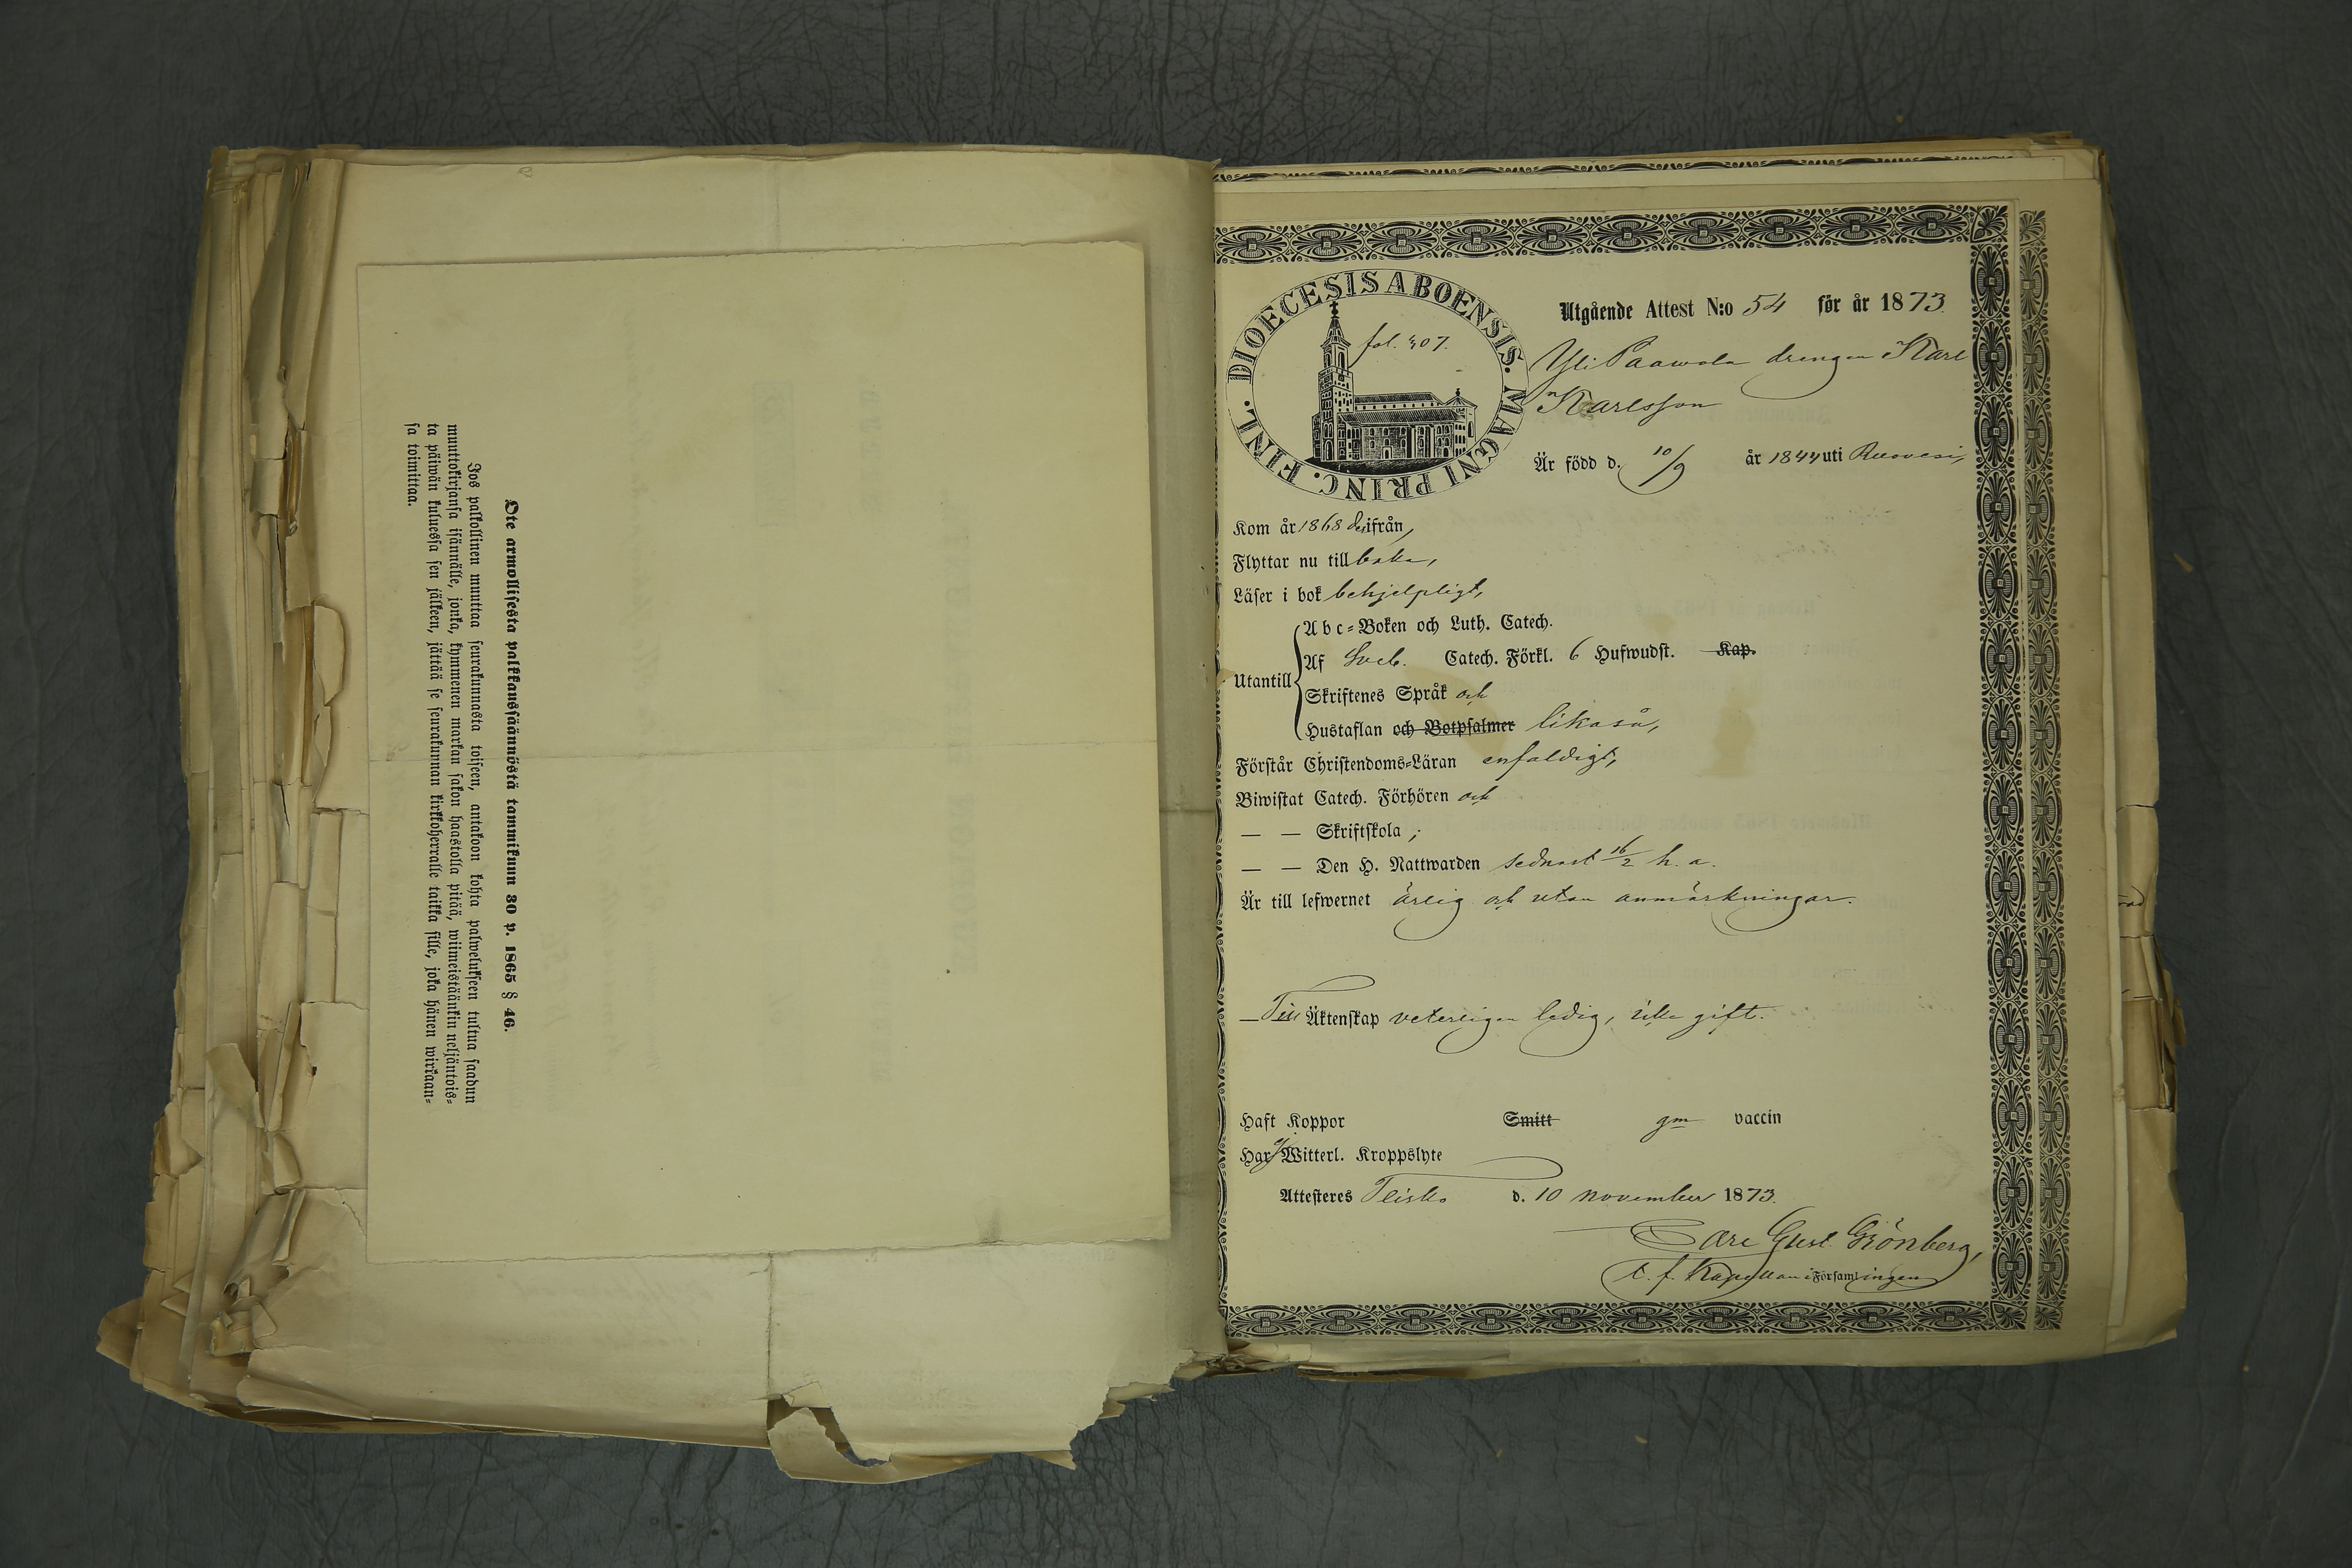 Ote armollisesta palkkaussäännöstä tammikuun 30 p. 1865 § 46.
Jos palkollinen muuttaa seurakunnasta toiseen, antakoon kohta palwelukseen tultua saadun
muuttokirjansa isännälle, jonka, kymmenen markan sakon haastolla pitää, wiimeistäänkin neljäntois-
ta päiwän kuluessa sen jälkeen, jättää se seurakunnan kirkkoherralle taikka sille, joka hänen wirkaan-
sa toimittaa.
DIOECESIS ABOENSIS. MAGNI PRINC. FINL.
fol. 407.
Utgående Attest N:o 54 för år 1873.
Yli Paawola drengen Karl
Karlsson
Är född d. 10/9 år 1844 uti Ruovesi,
Kom år 1868 derifrån,
Flyttar nu till baka,
Läser i bok behjelpligt,
Utantill
Abc-Boken och Luth. Catech.
Af Sveb. Catech. Förkl. 6 Hufwudst. Kap.
Skriftenes Språk och
Hustaflan och Botpsalmer likaså,
Förstår Christendoms-Läran enfaldigt,
Biwistat Catech. Förhören och
— — Skriftskola,
— — Den H. Nattwarden sednast 16/2 h. a.
Är till lefwernet ärlig och utan anmärkningar.
— Till Äktenskap veterligen ledig, icke gift.
Haft Koppor Smitt gm vaccin
Har ej Witterl. Kroppslyte
Attesteres Teisko d. 10 november 1873.
Carl Gust. Grönberg,
t. f. Kapellan i Församlingen